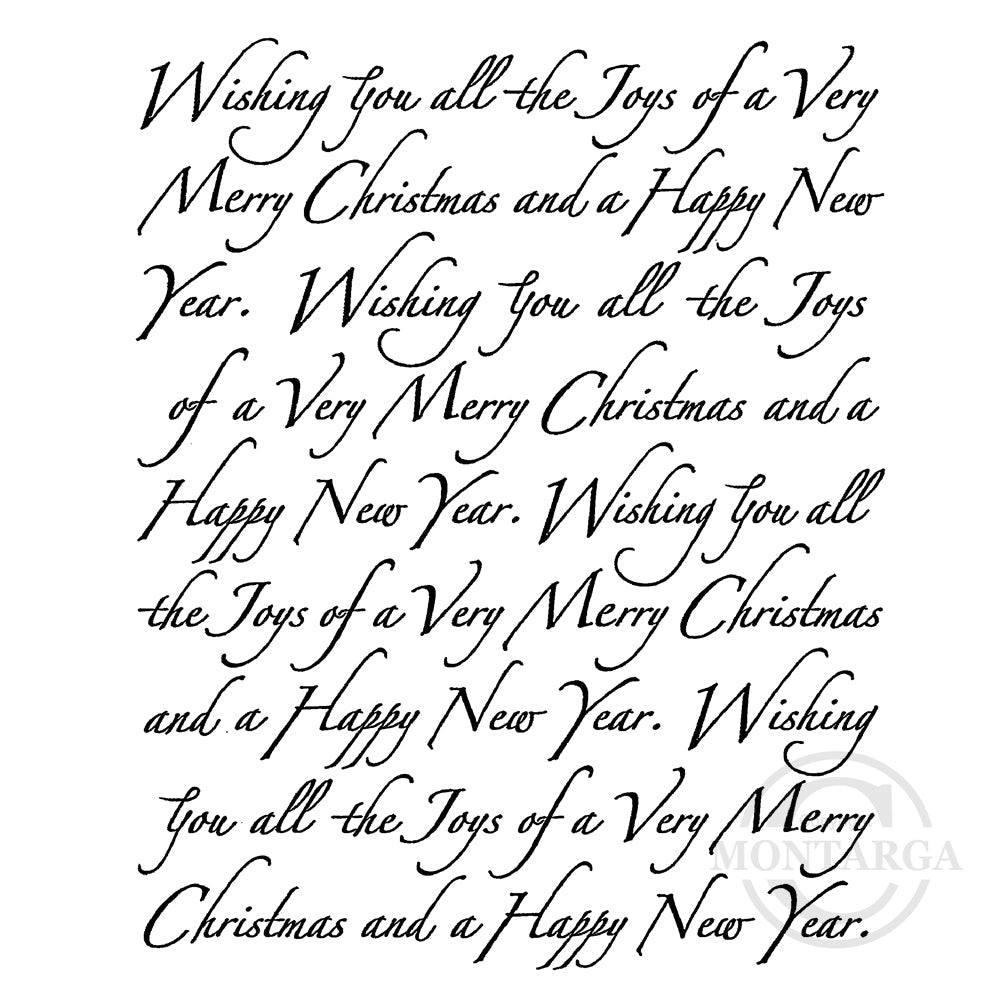 Wishing You all the Joys of a Very
Merry Christmas and a Happy New
Year. Wishing You all the Joys
of a Very Merry Christmas and a
Happy New Year. Wishing You all
the Joys of a Very Merry Christmas
and a Happy New Year. Wishing
You all the Joys of a Very Merry
MONTARGA
Christmas and a Happy New Year.